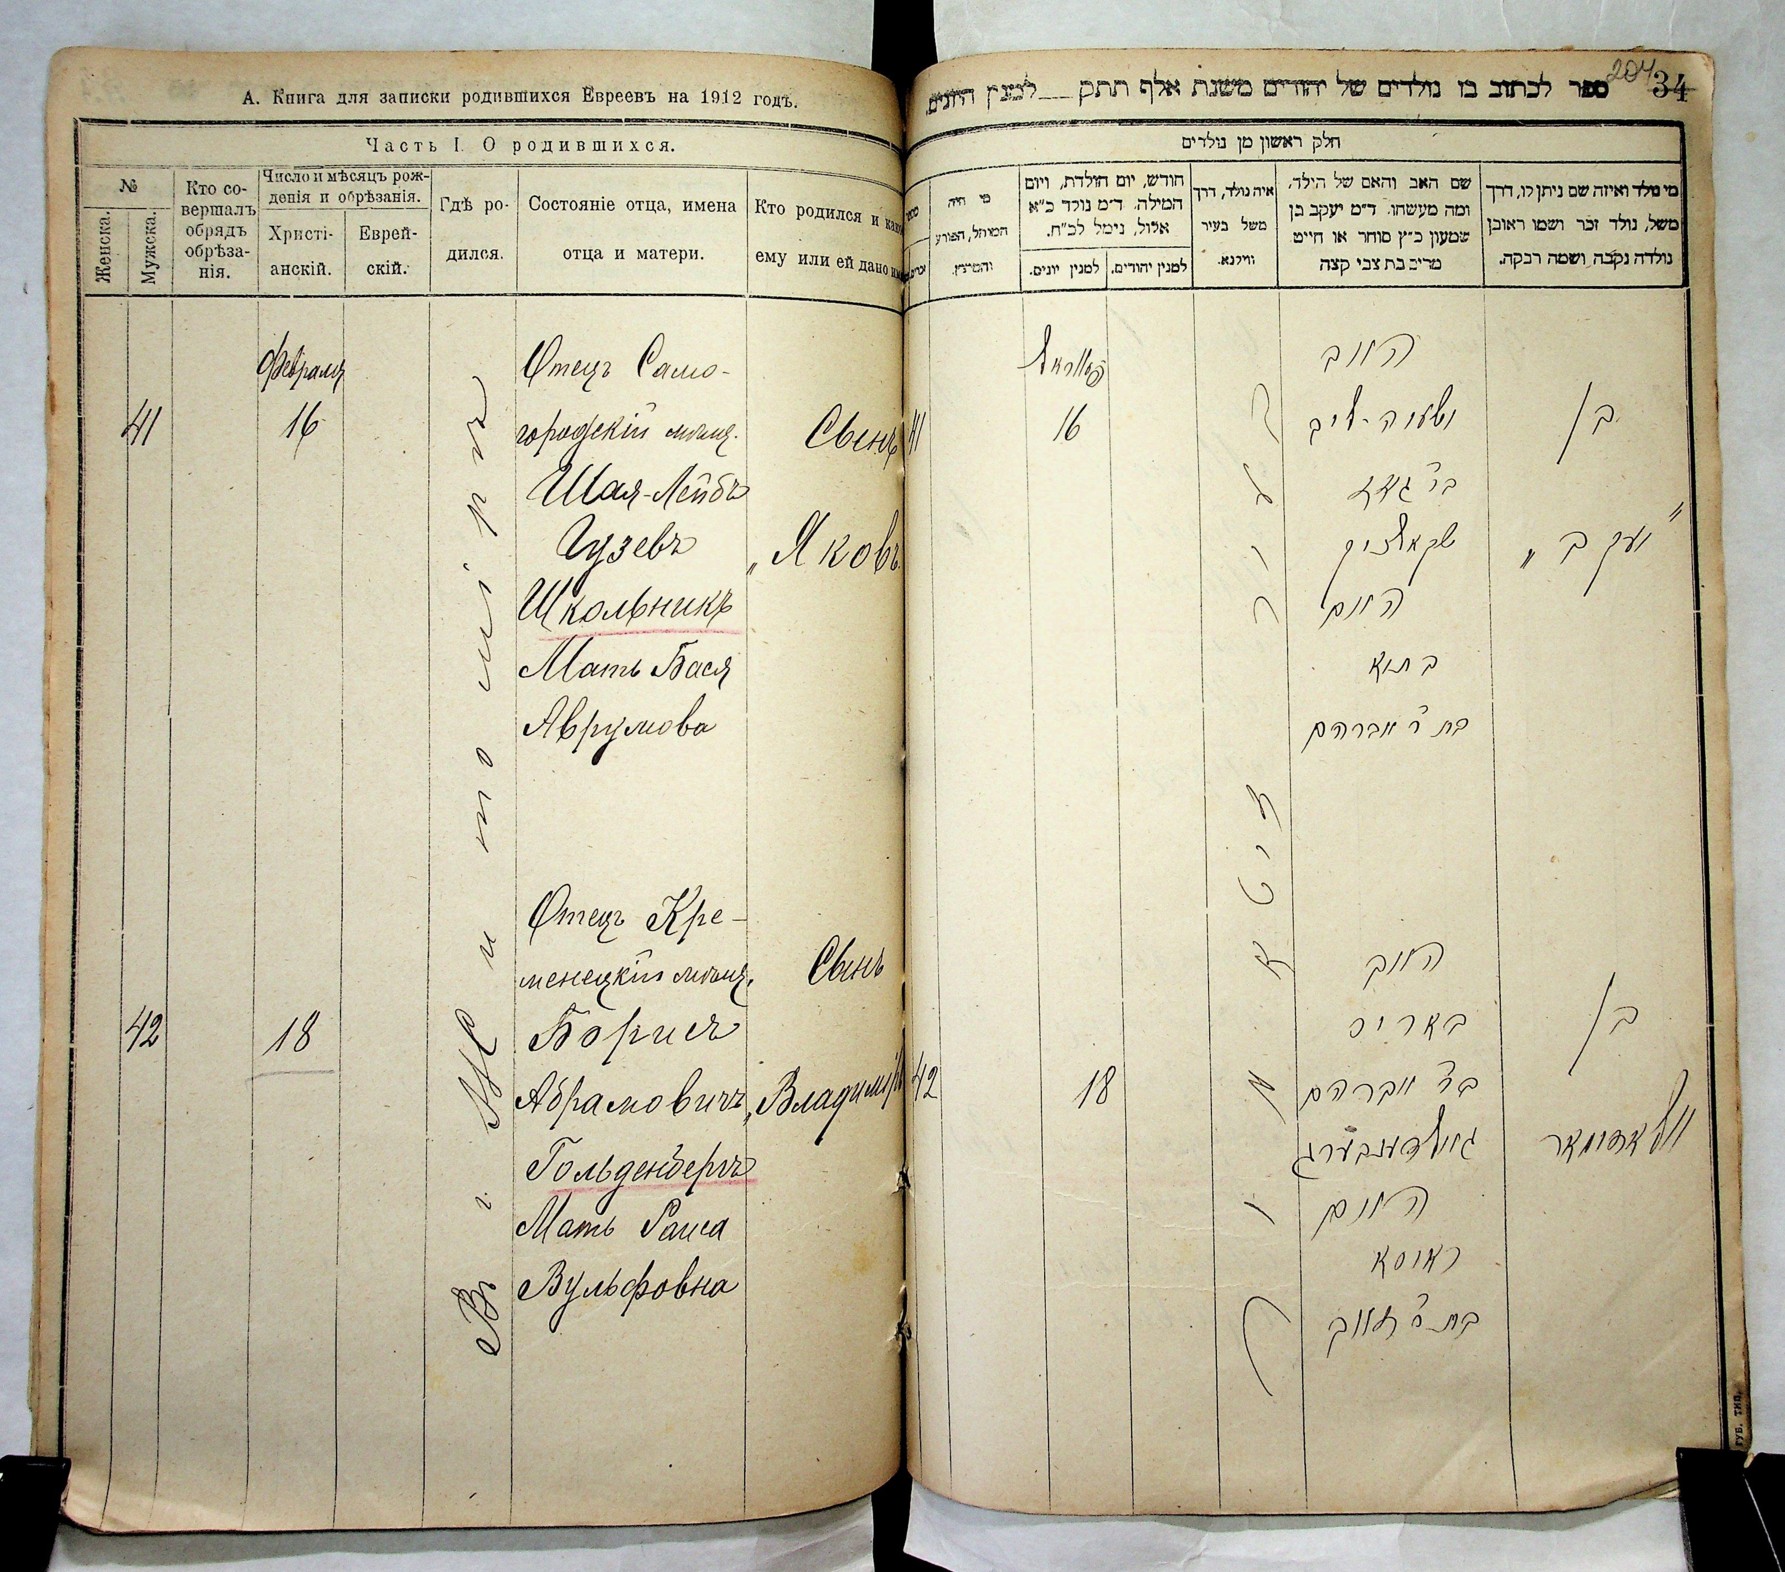 А. Книга для записки родившихся Евреевъ на 1912 годъ.
Часть I. О родившихся.
№
Женска.
Мужска.
Кто со-
вершалъ
обрядъ
обрѣза-
нія.
Число и мѣсяцъ рож-
денія и обрѣзанія.
Христі-
анскій.
Еврей-
скій.
Гдѣ ро-
дился.
Состояніе отца, имена
отца и матери.
Кто родился и како
ему или ей дано им
Февраля
41
16
Отецъ Само-
городскій мѣщ.
Шая-Лейбъ
Гузевъ
Школьникъ
Мать Бася
Аврумова
Сынъ
„Яковъ
Въ г. Житомірѣ
42
18
Отецъ Кре-
менецкій мѣщ.
Борисъ
Абрамовичъ
Гольденбергъ
Мать Раиса
Вульфовна
Сынъ
„Владиміръ
204
34
ספר לכתוב בו נולדים של יהודים משנת אלף תתק___למנין היונים.
חלק ראשון מן נולדים
מי נולד ואיזה שם ניתן לו, דרך
משל, נולד זכר ושמו ראובן
נולדה נקבה ושמה רבקה.
שם האב והאם של הילד,
ומה מעשהו. ד״מ יעקב בן
שמעון כ״ץ סוחר או חייט
מרים בת צבי קצה
איה נולד, דרך
משל בעיר
ווילנא.
חודש, יום הולדת, ויום
המילה. ד״מ נולד כ״א
אלול, נימל לכ״ח.
למנין יהודים.
למנין יונים.
מי היה
המוהל, הפורע
והמוצץ.
41
16
האב
ישעיה-ליב
שקאלניק
האם
בת ר׳ אברהם
בן
„יעקב„
זיטאמיר
42
18
האב
באריס
בר׳ אברהם
גאלדענבערג
האם
ראיסא
בת ר׳ זאב
בן
וולאדימיר
ГУБ. ТИП.